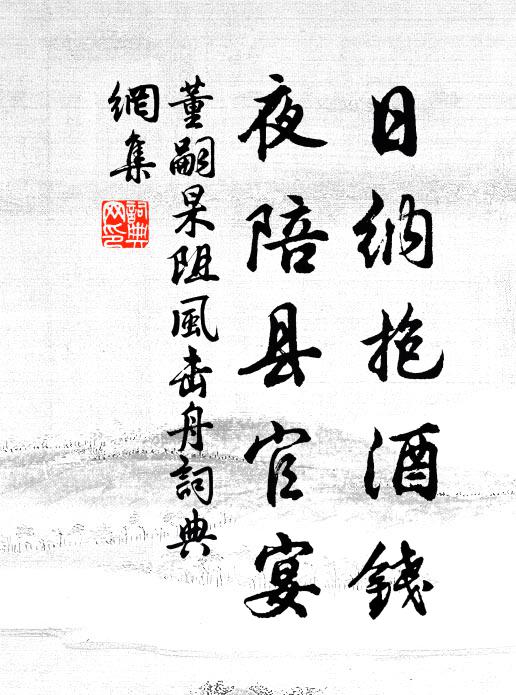 日纳抱酒錢
夜陪县官宴
董嗣杲阻風去舟詞典
網集
詞典
网印